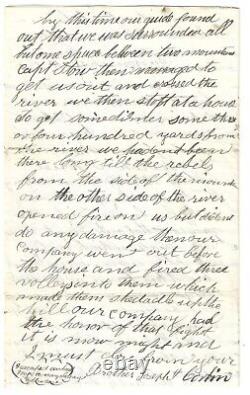 by this time our guide found
out that we was surrounded all
but one space between two mountains
Capt Stow then managed to
get us out and crossed the
river we then stopt at a house
to get some dinner some three
or four hundred yards from
the river we had not been
there long till the rebels
from the side of the mountain
on the other side of the river
opened fire on us but did not
do any damage then our
Company went out before
the house and fired three
volleys into them which
made them skedadle up the
hill our company had
the honor of that fight
it is now night and
I must close from your
Brother Joseph